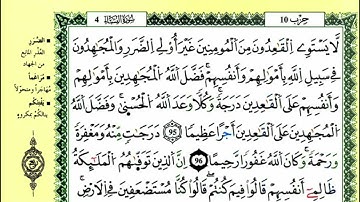 4 سُورَةُ النِّسَاءِ
حزب 10
لَّا يَسْتَوِے اِ۬لْقَٰعِدُونَ مِنَ اَ۬لْمُومِنِينَ غَيْرَ أُوْلِے اِ۬لضَّرَرِ وَالْمُجَٰهِدُونَ
فِے سَبِيلِ اِ۬للَّهِ بِأَمْوَٰلِهِمْ وَأَنفُسِهِمْۖ فَضَّلَ اَ۬للَّهُ اُ۬لْمُجَٰهِدِينَ بِأَمْوَٰلِهِمْ
وَأَنفُسِهِمْ عَلَے اَ۬لْقَٰعِدِينَ دَرَجَةٗۖ وَكُلّاٗ وَعَدَ اَ۬للَّهُ اُ۬لْحُسْن۪ىٰۖ وَفَضَّلَ اَ۬للَّهُ
اُ۬لْمُجَٰهِدِينَ عَلَے اَ۬لْقَٰعِدِينَ أَجْراً عَظِيماٗ 95 دَرَجَٰتٖ مِّنْهُ وَمَغْفِرَةٗ
وَرَحْمَةٗۖ وَكَانَ اَ۬للَّهُ غَفُوراٗ رَّحِيماًۖ 96 اِنَّ اَ۬لذِينَ تَوَفّ۪ىٰهُمُ اُ۬لْمَلَٰٓئِكَةُ
ظَالِمِےٓ أَنفُسِهِمْ قَالُواْ فِيمَ كُنتُمْۖ قَالُواْ كُنَّا مُسْتَضْعَفِينَ فِے اِ۬لَارْضِۖ
الضَّرَرِ
العُذْرِ المانِعِ
من الجهاد
مُرَاغَماً
مُهَاجَراً ومُتَحَوَّلاً
يَفْتِنَكُمُ
يَنَالُكُمْ بمكروهٍ